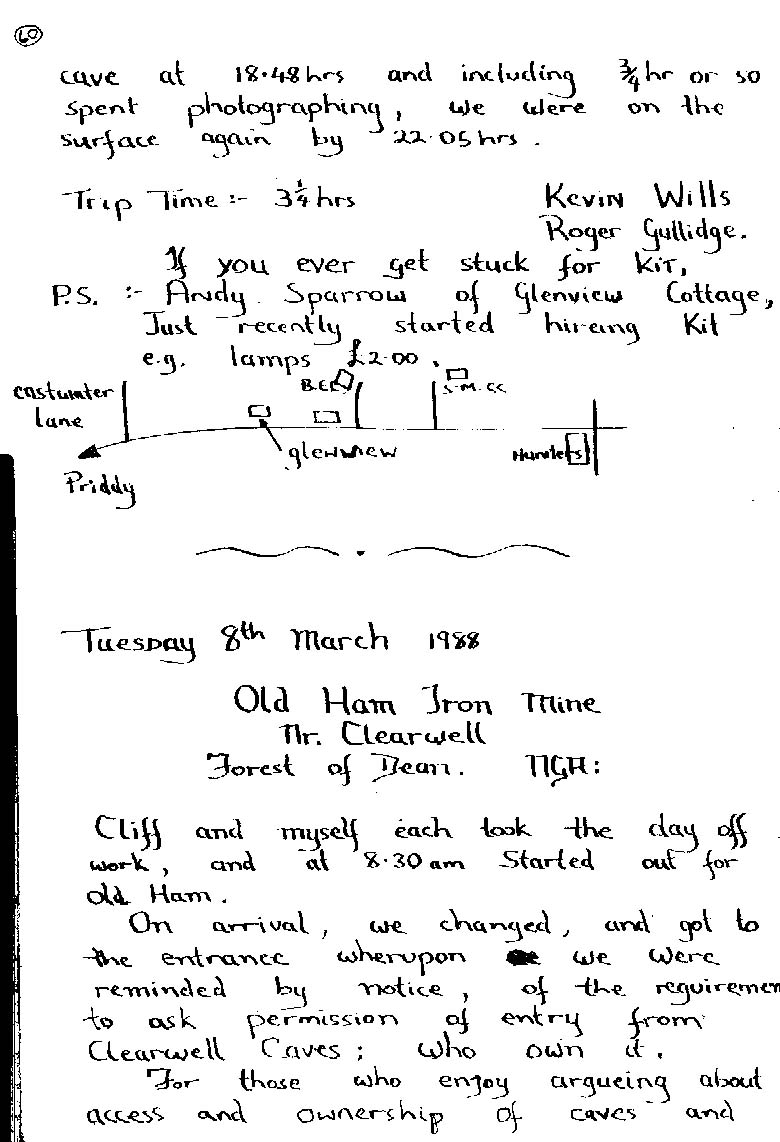 60
cave at 18.48hrs and including ¾hr or so
spent photographing, we were on the
surface again by 22.05hrs.
Trip Time :- 3¼hrs Kevin Wills
Roger Gullidge.
If you ever get stuck for Kit,
P.S. :- Andy Sparrow of Glenview Cottage,
Just recently started hireing Kit
e.g. lamps £2.00.
B.E.C. S.M.C.C.
Eastwater
lane
glenview Hunters
Priddy
Tuesday 8th March 1988
Old Ham Iron Mine
Nr. Clearwell
Forest of Dean. NGR:
Cliff and myself each took the day off
work, and at 8.30am Started out for
old Ham.
On arrival, we changed, and got to
the entrance wherupon we were
reminded by notice, of the requiremen
to ask permission of entry from
Clearwell Caves; who own it.
For those who enjoy argueing about
access and ownership of caves and